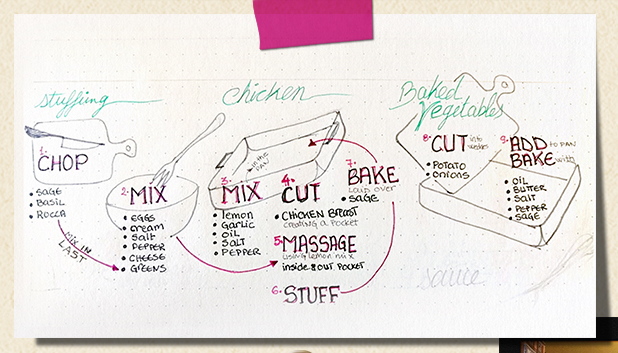 stuffing
1.
CHOP
• SAGE
• BASIL
• ROCCA
MIX IN
LAST
2.
MIX
• EGGS
• cream
• Salt
• PEPPER
• CHEESE
• GREENS
chicken
3.
MIX
in the
PAN
• lemon
• Garlic
• OIL
• SALT
• PEPPER
4.
CUT
• CHICKEN BREAST
creating a pocket
5. MASSAGE
using lemon mix
inside & out pocket
6. STUFF
7.
BAKE
over
• SAGE
Baked
Vegetables
8. CUT into
wedges
• POTATO
• onions
9. ADD to PAN
BAKE with
• OIL
• BUTTER
• SALT
• PEPPER
• SAGE
sauce